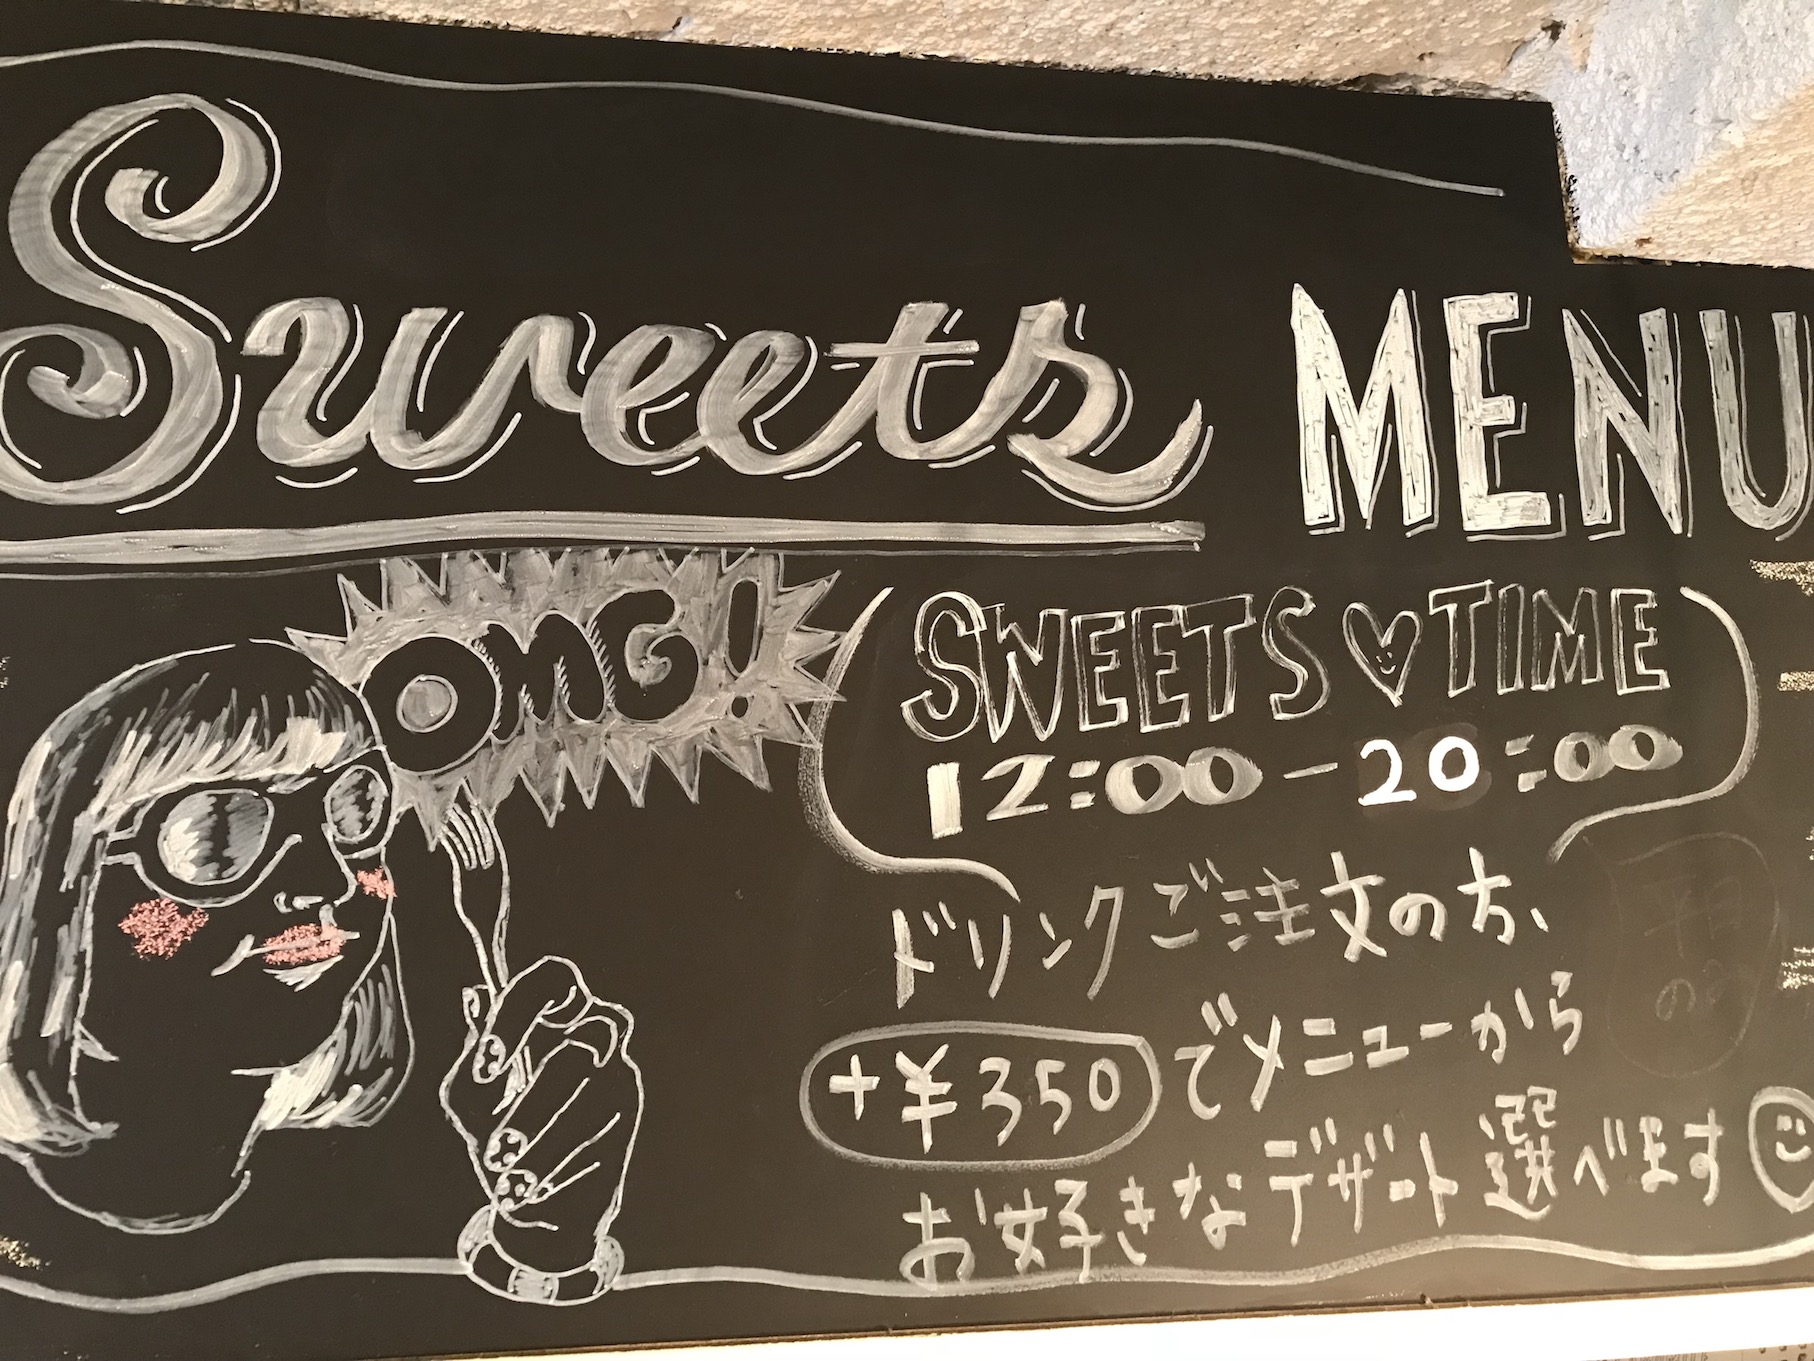 Sweets MENU
OMG!
SWEETS♡TIME
12:00-20:00
ドリンクご注文の方、
+¥350でメニューから
お好きなデザート選べます